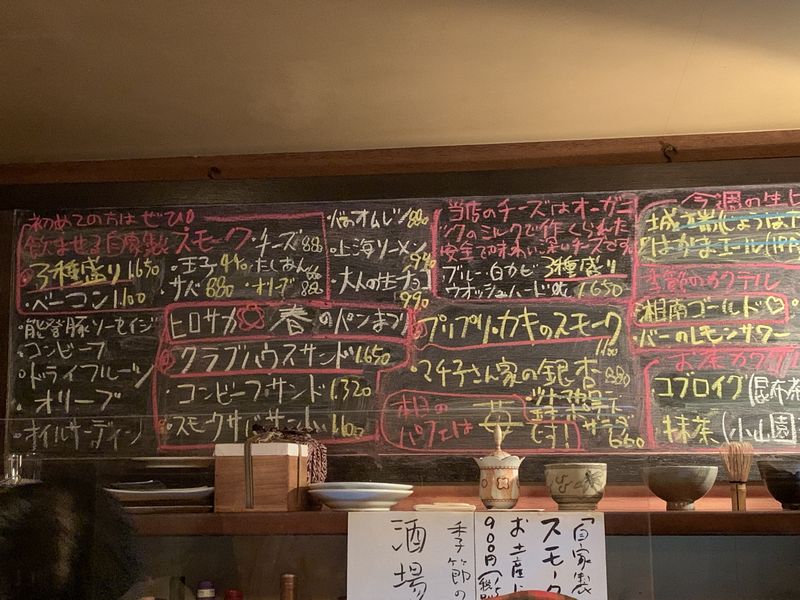 初めての方はぜひ
飲ませる自家製スモーク
3種盛り1650
・チーズ
・玉子440
・たくあん
・サバ880
・オリーブ
・ベーコン1100
・上海ソーメン
・大人の生チョコ
990
当店のチーズはオーガニ
ックのミルクで作くられた
安全で味わい深いチーズです
ブルー・白カビ
ウオッシュ・ハード
3種盛り
1,650
今週の生ビ
はかまエール(IPA
季節のカクテル
湘南ゴールド
・バーのレモンサワー
お茶カクテル
コブロイグ(昆布茶
抹茶(小山園
・能登豚ソーセイジ
・コンビーフ
・ドライフルーツ
・オリーブ
・オイルサーディン
ヒロサカ春のパンまつり
クラブハウスサンド1,650
・コンビーフ・サンド1,320
・スモークサバサンド1,100
プリプリ・カキのスモーク
1,100
・マチ子さん家の銀杏880
・ツナマカロニ
サラダ
660
パフェは
苺
です!
「自家製
スモーク
お土産
900円
季節の
酒場